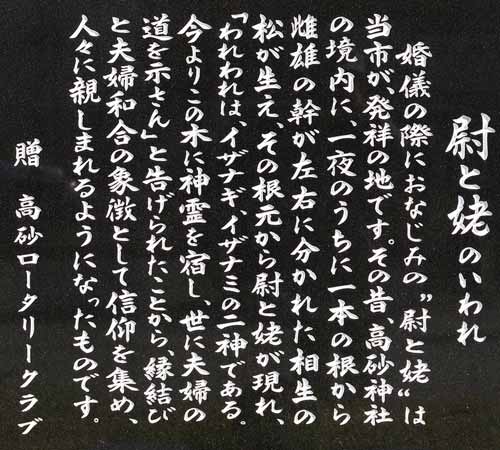 尉と姥のいわれ
婚儀の際におなじみの〝尉と姥〟は
当市が、発祥の地です。その昔、高砂神社
の境内に、一夜のうちに一本の根から
雌雄の幹が左右に分かれた相生の
松が生え、その根元から尉と姥が現れ、
「われわれは、イザナギ、イザナミの二神である。
今よりこの木に神霊を宿し、世に夫婦の
道を示さん」と告げられたことから、縁結び
と夫婦和合の象徴として信仰を集め、
人々に親しまれるようになったものです。
贈 高砂ロータリークラブ